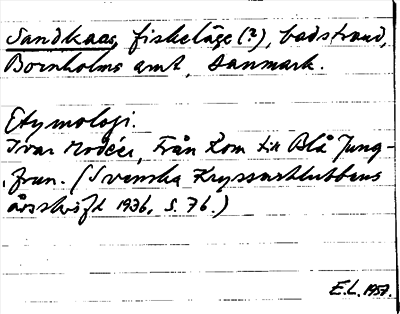 Sandkaas, fiskeläge (?), badstrand,
Bornholms amt, Danmark.
Etymologi.
Ivar Modéer, Från Rom till Blå Jung-
frun. (Svenska Kryssarklubbens
årsskrift 1936, s. 76.)
E.L. 1957.